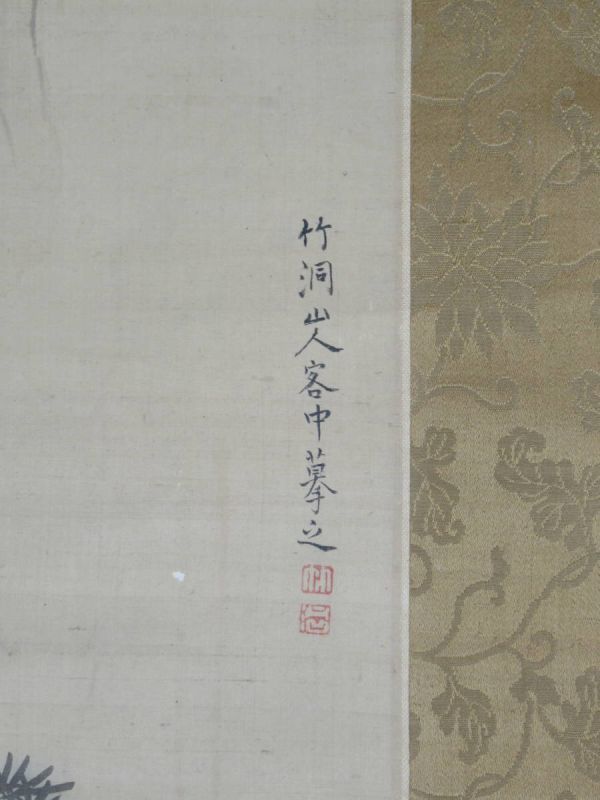 竹洞山人客中摹之